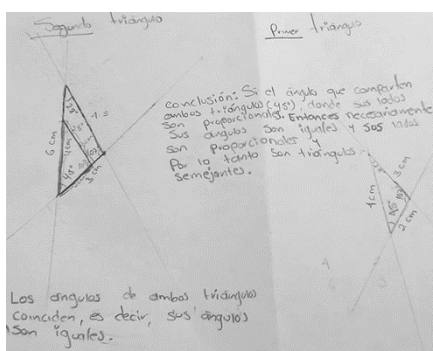 Segundo triángulo
Primer triángulo
Conclusión: Si el ángulo que comparten
ambos triángulos (45°), donde sus lados
son proporcionales. Entonces necesariamente
sus ángulos son iguales y sus lados
son proporcionales y
Por lo tanto son triángulos
semejantes.
6 cm
4 cm
28°
45°
107°
3 cm
4.5
3 cm
45°
107°
2 cm
Los angulos de ambos triángulos
coinciden, es decir, sus ángulos
son iguales.